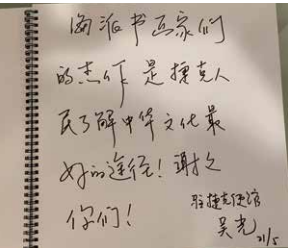 海派书画家们
的杰作是捷克人
民了解中华文化最
好的途径！谢谢
你们！
驻捷克使馆
吴光 21/5